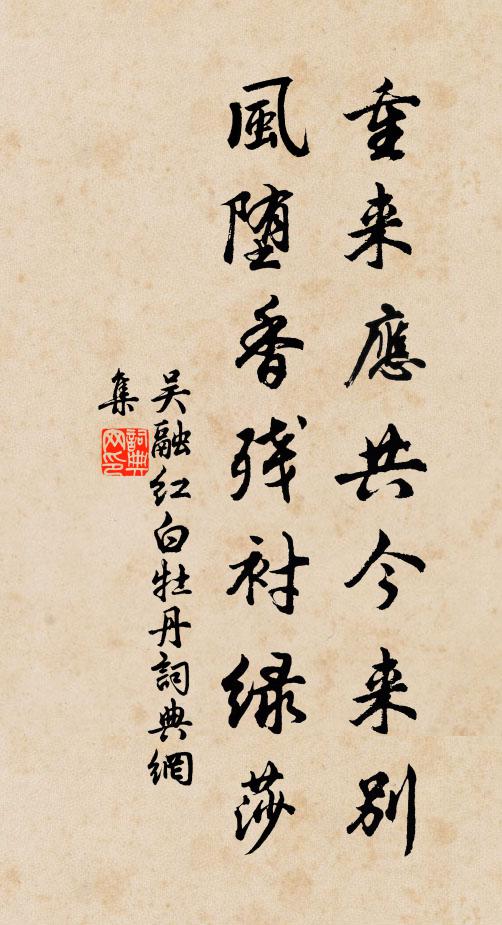 重来應共今来别
風堕香残衬緑莎
吴融红白牡丹詞典網
集
詞典
网印